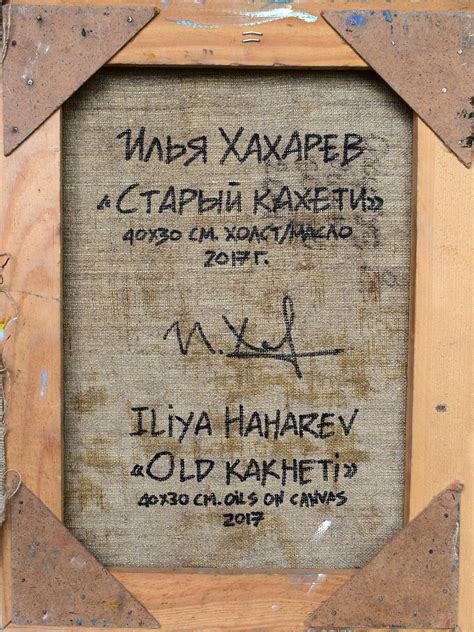 Илья Хахарев
«Старый Кахети»
40х30 см. холст/масло
2017 г.
И. Хах
Iliya Haharev
«Old Kakheti»
40x30 cm. oils on canvas
2017